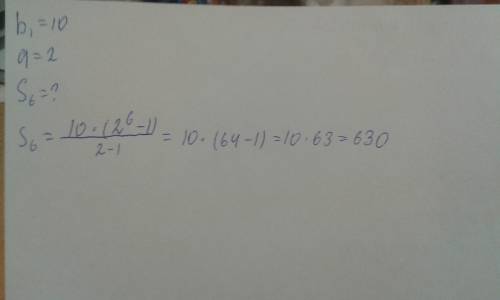 b₁=10
q=2
S₆=?
S₆ = 10·(2⁶-1) / 2-1 = 10·(64-1)=10·63=630